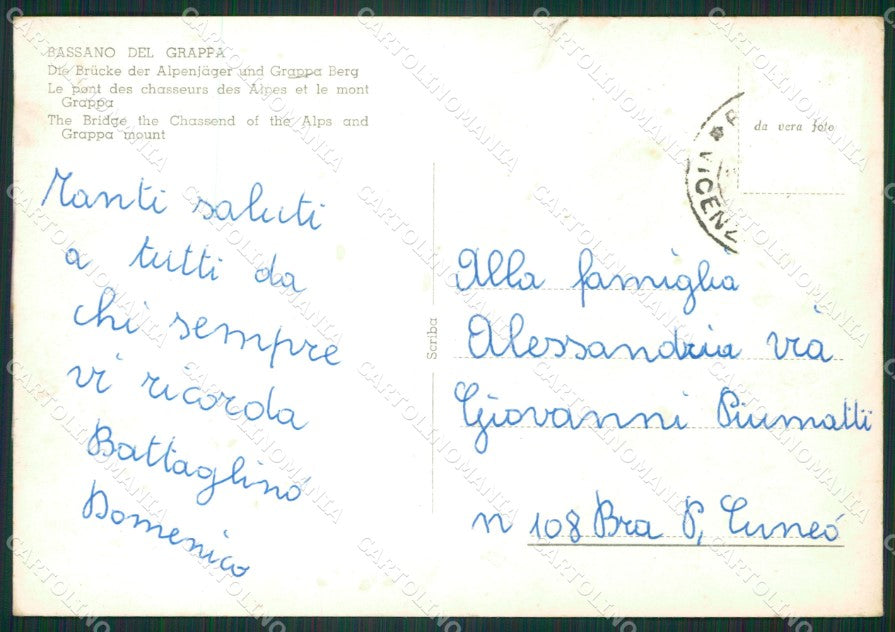 BASSANO DEL GRAPPA
Die Brücke der Alpenjäger und Grappa Berg
Le pont des chasseurs des Alpes et le mont
Grappa
The Bridge the Chassend of the Alps and
Grappa mount
da vera foto
VICENZ
Tanti saluti
a tutti da
chi sempre
vi ricorda
Battaglino
Domenico
Scriba
Alla famiglia
Alessandria via
Giovanni Piumatti
n 108 Bra P, Cuneo
CARTOLINOMANIA